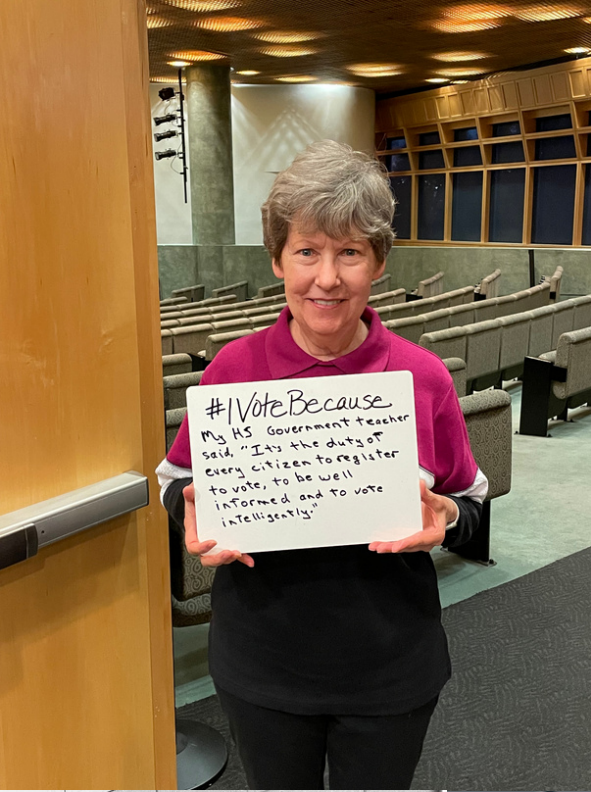 #IVoteBecause
My HS Government teacher
said, "It's the duty of
every citizen to register
to vote, to be well
informed and to vote
intelligently."